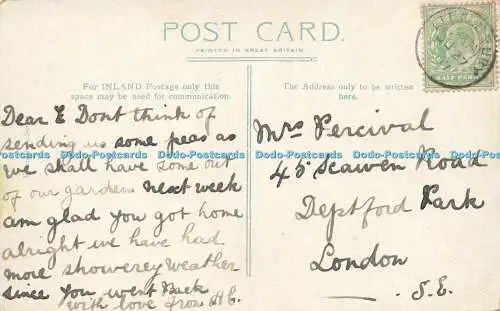 POST CARD.
PRINTED IN GREAT BRITAIN
For INLAND Postage only this
space may be used for communication.
The Address only to be written
here.
HALF PENNY
Dear E Dont think of
sending us some peas as
we shall have some out
of our garden next week
am glad you got home
alright we have had
more showerey weather
since you went Back
with love from
Mrs Percival
45 Scawen Road
Deptford Park
London
S.E.
www.hippostcard.com